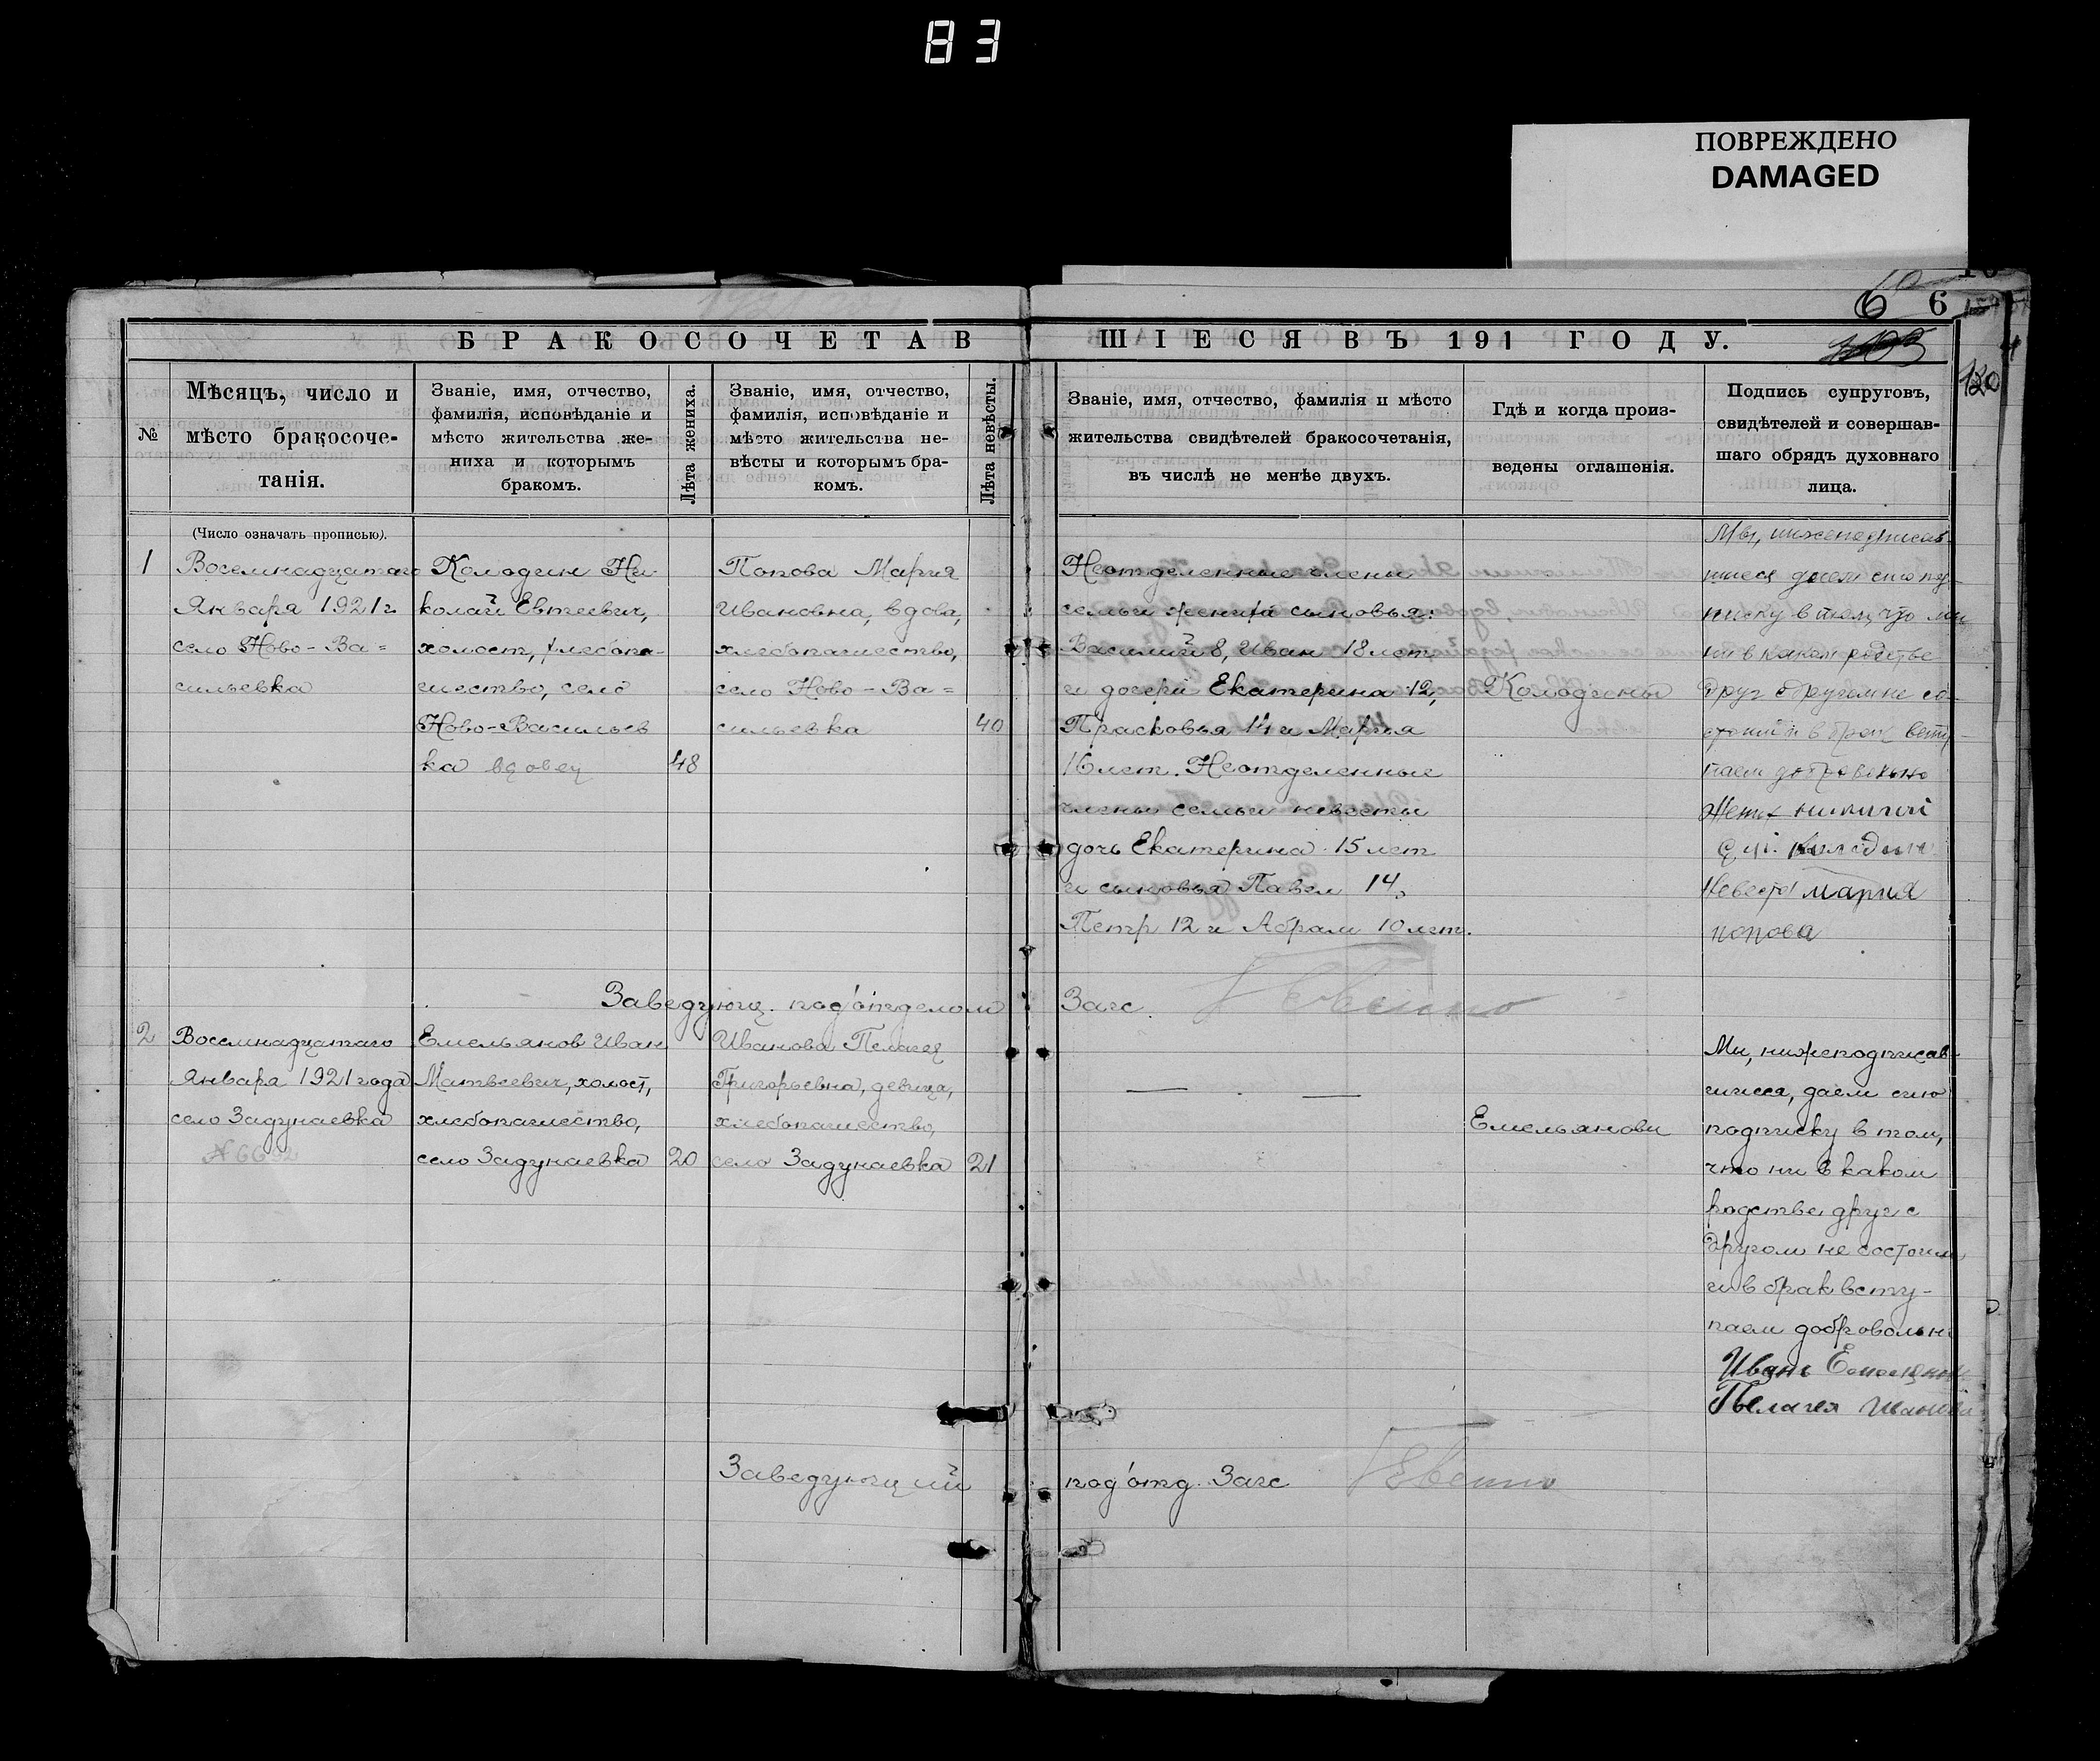 83
ПОВРЕЖДЕНО
DAMAGED
6 6
120
БРАКОСОЧЕТАВ ШІЕСЯ ВЪ 191 ГОДУ.
№
Мѣсяцъ, число и
мѣсто бракосоче-
танія.
Званіе, имя, отчество,
фамилія, исповѣданіе и
мѣсто жительства же-
ниха и которымъ
бракомъ.
Лѣта жениха.
Званіе, имя, отчество,
фамилія, исповѣданіе и
мѣсто жительства не-
вѣсты и которымъ бра-
комъ.
Лѣта невѣсты.
Званіе, имя, отчество, фамилія и мѣсто
жительства свидѣтелей бракосочетанія,
въ числѣ не менѣе двухъ.
Гдѣ и когда произ-
ведены оглашенія.
Подпись супруговъ,
свидѣтелей и совершав-
шаго обрядъ духовнаго
лица.
(Число означать прописью).
1
Восемнадцатаго
Января 1921 г.
село Ново-Ва=
сильевка
Колодчин Ни
колай Евтеевич,
холост, хлебопа-
шество, село
Ново-Васильев
ка вдовец
48
Попова Мария
Ивановна, вдова,
хлебопашество,
село Ново-Ва=
сильевка
40
Неотделенные члены
семьи жениха сыновья:
Василий 8, Иван 18 лет
и дочери Екатерина 12,
Прасковья 14 и Мария
16 лет. Неотделенные
члены семьи невесты
дочь Екатерина 15 лет
и сыновья Павел 14,
Петр 12 и Абрам 10 лет.
Колодчены
Мы, нижеподписав-
шиеся даем сию под-
писку в том, что мы
ни в каком родстве
друг с другом не со-
стоим и в брак всту-
паем добровольно
Жених
Невеста мария
попова
Заведующ. под'отделом Загс.
2
Восемнадцатаго
Января 1921 года
село Задунаевка
№ 6692
Емельянов Иван
Матвеевич, холост,
хлебопашество,
село Задунаевка
20
Иванова Пелагея
Григорьевна, девица,
хлебопашество,
село Задунаевка
21
Емельяновы
Мы, нижеподписав-
шиеся, даем сию
подписку в том,
что ни в каком
родстве друг с
другом не состоим
и в брак всту-
паем добровольно
Иванъ Емельянов
Пелагея Иванова
Заведующий под'отд. Загс